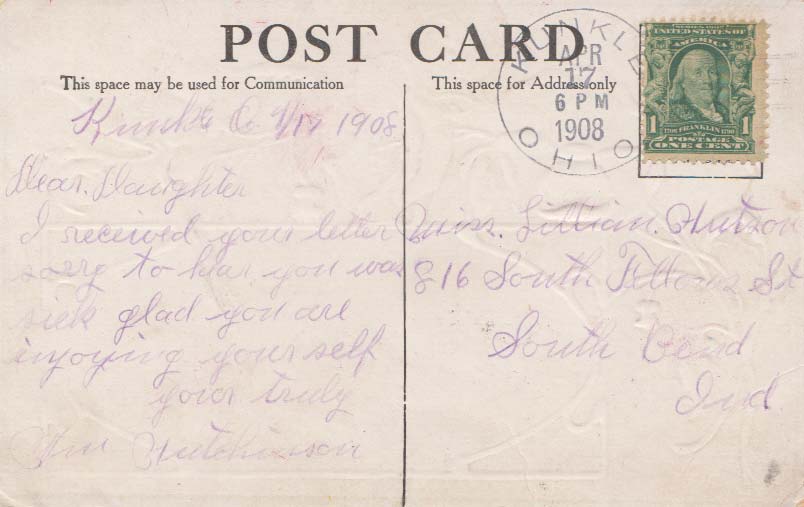 POST CARD
This space may be used for Communication
This space for Address only
KUNKLE
APR
17
6 PM
1908
OHIO
SERIES 1902
UNITED STATES OF
AMERICA
1 1706 FRANKLIN 1790 1
POSTAGE
ONE CENT
Kunkle O 4/17 1908
Dear. Daughter
I received your letter
sorry to hear you was
sick glad you are
injoying your self
your truly
Wm Hutchinson
Miss. Lillian. Hutson
816 South Fellows St
South Bend
Ind